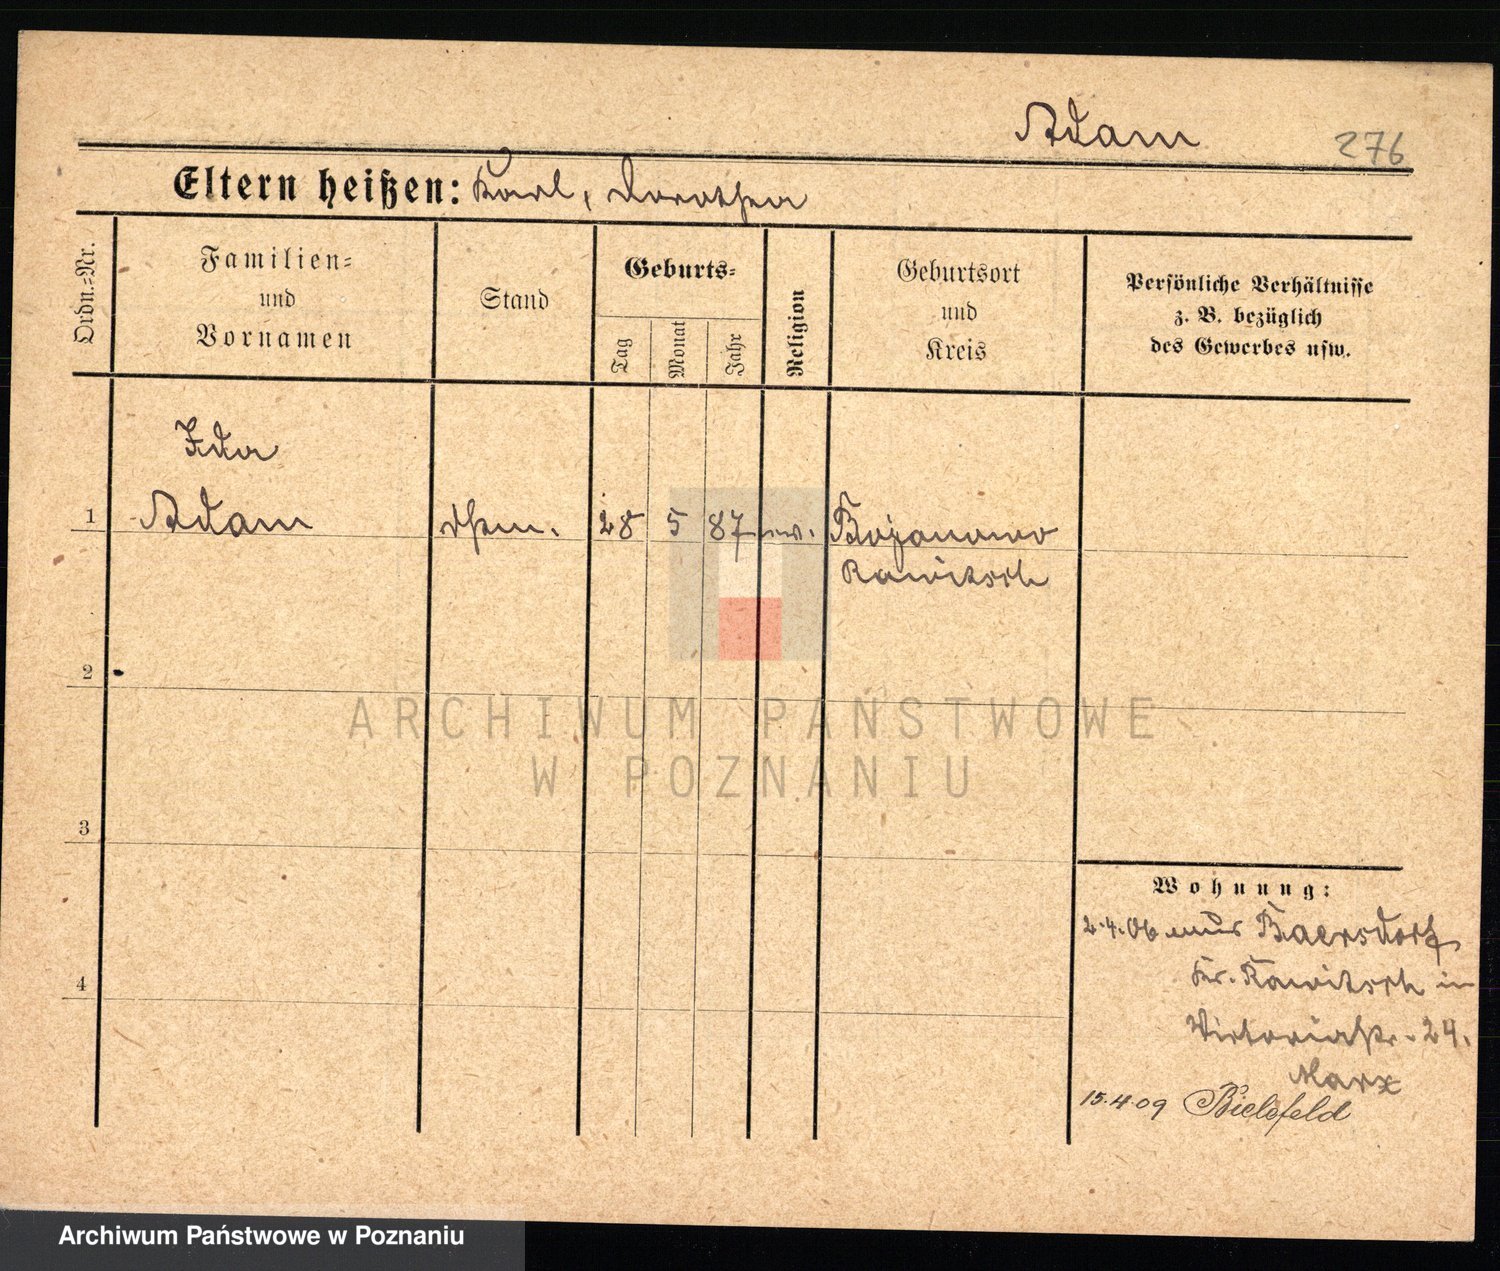 Adam
276
Eltern heißen: Karl, Dorothea
Ordn.=Nr.
Familien=
und
Vornamen
Stand
Geburts=
Tag
Monat
Jahr
Religion
Geburtsort
und
Kreis
Persönliche Verhältnisse
z. B. bezüglich
des Gewerbes usw.
Ida
1 Adam 28 5 87 ev. Bojanowo
Rawitsch
2
ARCHIWUM PAŃSTWOWE
W POZNANIU
3
Wohnung:
2.4.06 aus Baersdorf
Kr. Rawitsch in
4
Victoriastr. 24.
Marx
15.4.09 Bielefeld
Archiwum Państwowe w Poznaniu